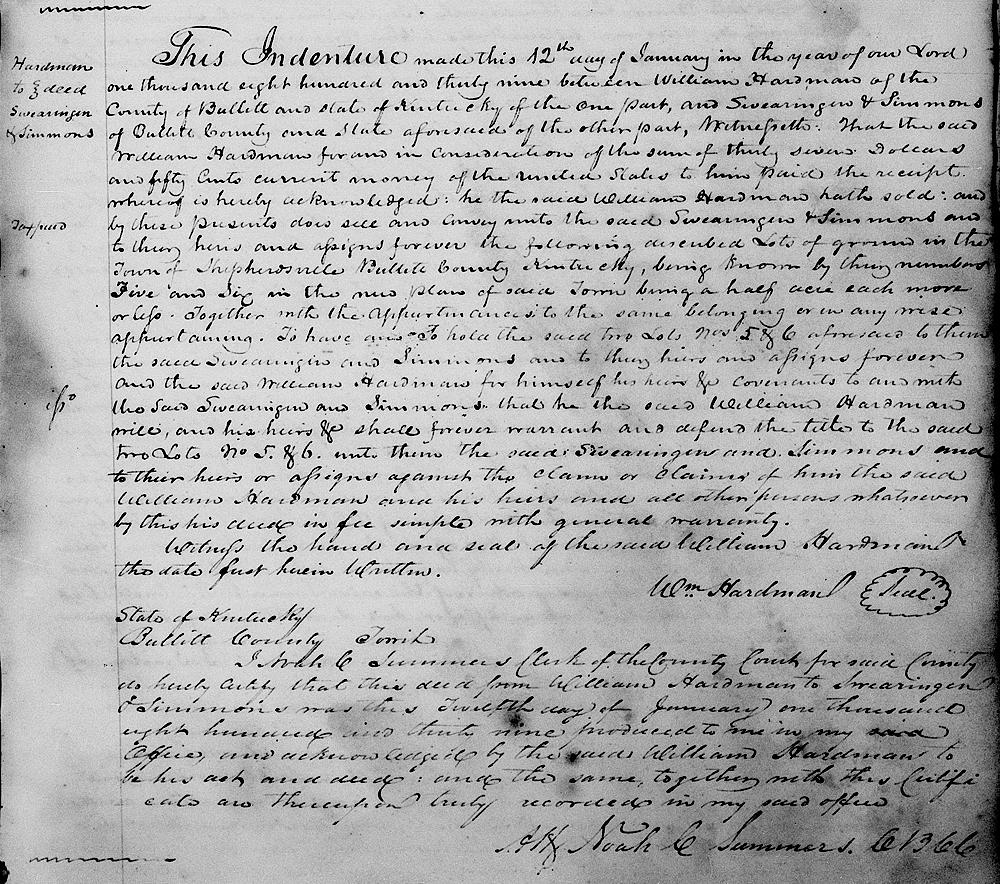 Hardman
to } deed
Swearingen
& Simmons
This Indenture made this 12th day of January in the year of our Lord
one thousand eight hundred and thirty nine between William Hardman of the
County of Bullitt and state of Kentucky of the one part, and Swearingen & Simmons
of Bullitt County and State aforesaid of the other part, Witnesseth: That the said
William Hardman for and in consideration of the sum of thirty seven Dollars
and fifty Cents current money of the united States to him paid the receipt
whereof is hereby acknowledged: he the said William Hardman hath sold: and
Tax paid
by these presents does sell and convey unto the said Swearingen & Simmons and
to their heirs and assigns forever the following described Lots of ground in the
Town of Shepherdsville Bullitt County Kentucky, being known by their numbers
Five and Six in the new plan of said Town being a half acre each more
or less. Together with the appurtinances to the same belonging or in any wise
appurtaining. To have and To hold the said two Lots Nos 5 & 6 aforesaid to them
the said Swearingen and Simmons and to their heirs and assigns forever
and the said William Hardman for himself his heirs &c covenants to and with
the said Swearingen and Simmons that he the said William Hardman
will, and his heirs &c shall forever warrant and defend the title to the said
two Lots No 5. & 6. unto them the said Swearingen and Simmons and
to their heirs or assigns against the claim or claims of him the said
William Hardman and his heirs and all other persons whatsoever
by this his deed in fee simple with general warranty.
Witness the hand and seal of the said William Hardman
the date first herein Written.
Wm Hardman Seal.
State of Kentucky
Bullitt County
I Noah C Summers Clerk of the County Court for said County
do hereby certify that this deed from William Hardman to Swearingen
& Simmons was this Twelfth day of January one thousand
eight hundred and thirty nine produced to me in my said
Office, and acknowledged by the said William Hardman to
be his act and deed: and the same, together with this Certifi
cate are thereupon truly recorded in my said office
Att Noah C Summers. C B C C